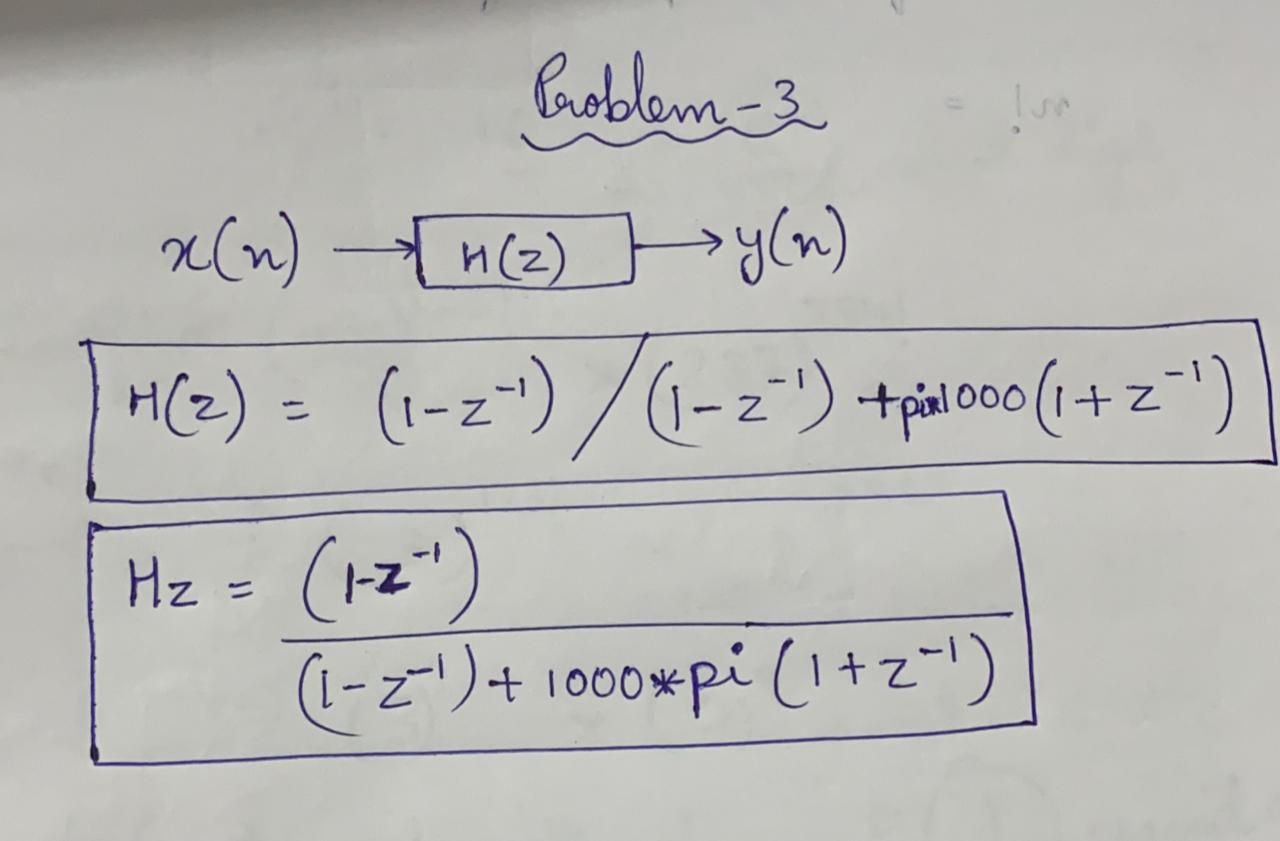 Problem-3
x(n) → H(z) → y(n)
H(z) = (1-z⁻¹) / (1-z⁻¹) +pi*1000(1+z⁻¹)
Hz = (1-z⁻¹)
(1-z⁻¹)+1000*pi(1+z⁻¹)